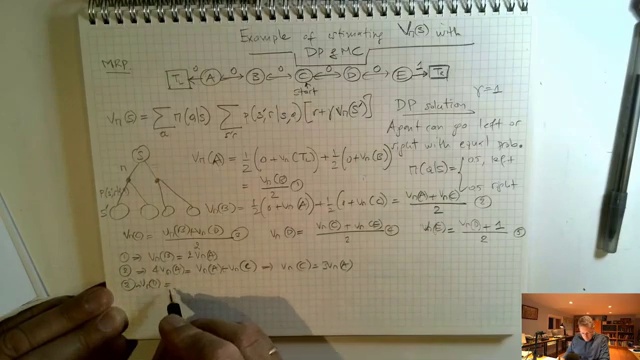 Example of estimating Vπ(s) with
DP & MC
MRP
TL 0 A 0 B 0 C 0 D 0 E 1 TR
start
Vπ(s) = Σa π(a|s) Σs'r p(s',r|s,a) [r+γVπ(s')]
DP solution γ=1
Agent can go left or
right with equal prob.
π(a|s)= { 0.5, left
0.5 right
S
π
s'
Vπ(A) = 1/2 (0+Vπ(TL)) + 1/2 (0+Vπ(B))
= Vπ(B)/2 ①
Vπ(B) = 1/2 (0+Vπ(A)) + 1/2 (0+Vπ(C)) = (Vπ(A)+Vπ(C))/2 ②
Vπ(C) = (Vπ(B)+Vπ(D))/2 ③ Vπ(D) = (Vπ(C)+Vπ(E))/2 ④ Vπ(E) = (Vπ(D)+1)/2 ⑤
① ⇒ Vπ(B) = 2Vπ(A)
② ⇒ 4Vπ(A) = Vπ(A)+Vπ(C) ⇒ Vπ(C) = 3Vπ(A)
③ ⇒ Vπ(D) =